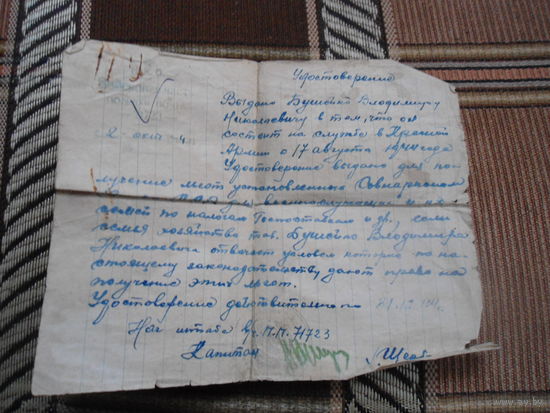 Удостоверение
Выдано Бушейко Владимиру
Николаевичу в том, что он
состоит на службе в Красной
Армии с 17 августа 1944 года
Удостоверение выдано для по-
лучения льгот установленных Совнаркомом
военнослужащим и их
семей по налогам Госпоставкам и др., если
семья хозяйство тов. Бушейко Владимира
Николаевича отвечает условом которые по на-
стоящему законодательству дают право на
получение этих льгот.
Удостоверение действительно по 31.12.
Нач штаба П.П. 71723
Капитан